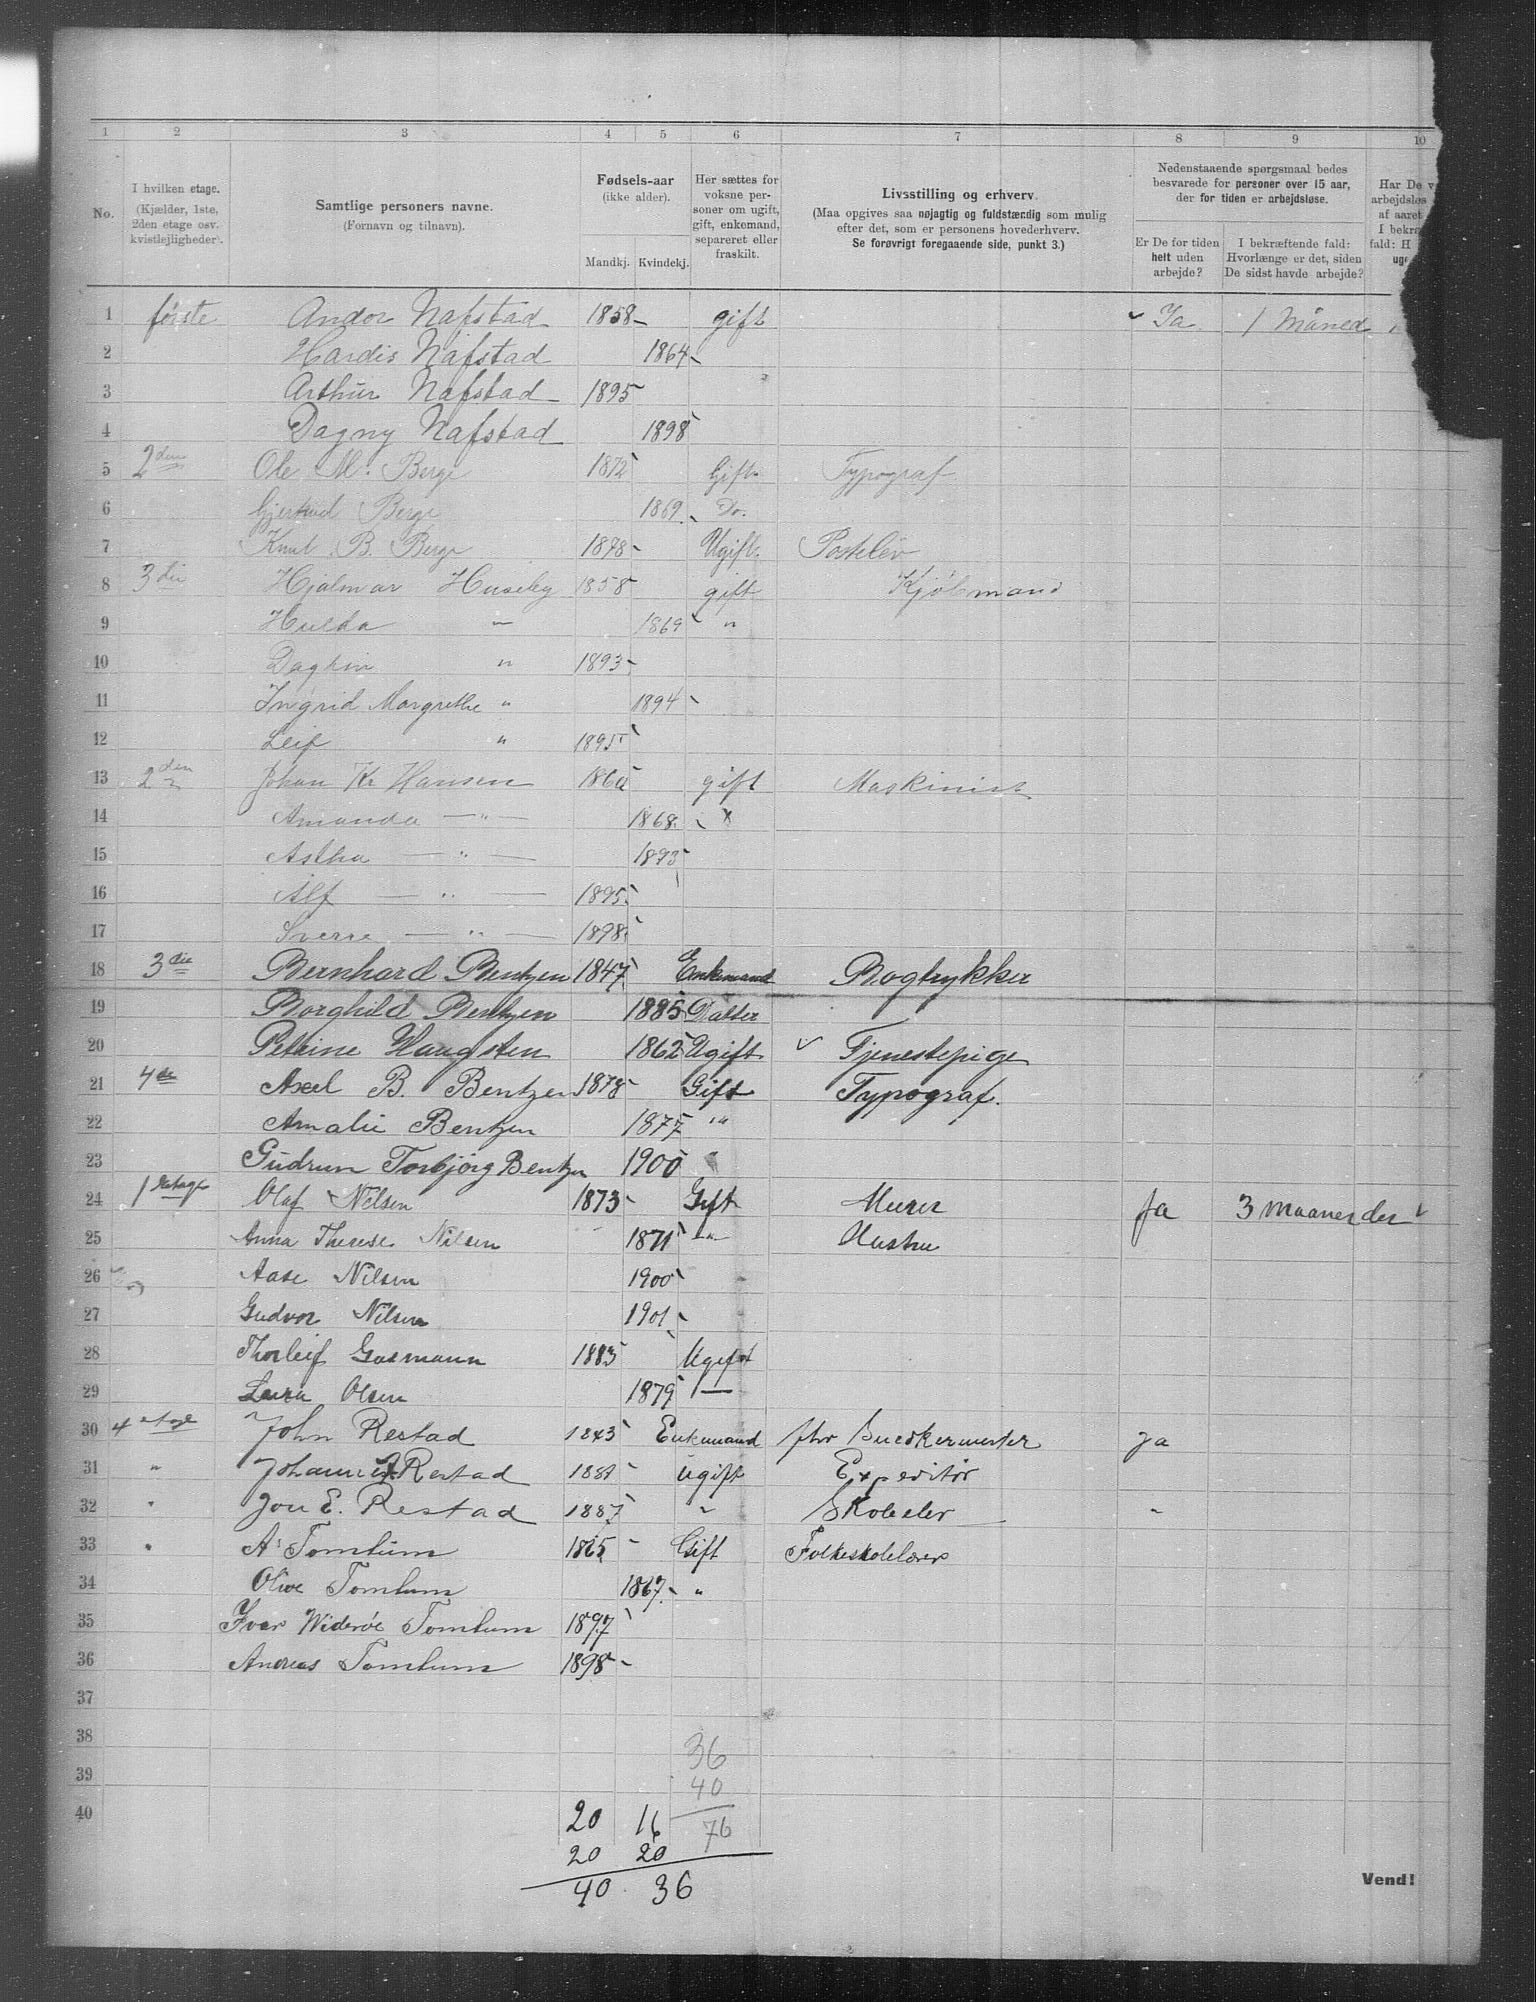 1 2 3 4 5 6 7 8 9 10
No.
I hvilken etage.
(Kjælder, 1ste,
2den etage osv.
kvistlejligheder).
Samtlige personers navne.
(Fornavn og tilnavn).
Fødsels-aar
(ikke alder).
Mandkj. Kvindekj.
Her sættes for
voksne per-
soner om ugift,
gift, enkemand,
separeret eller
fraskilt.
Livsstilling og erhverv.
(Maa opgives saa nøjagtig og fuldstændig som mulig
efter det, som er personens hovederhverv.
Se forøvrigt foregaaende side, punkt 3.)
Nedenstaaende spørgsmaal bedes
besvarede for personer over 15 aar,
der for tiden er arbejdsløse.
Er De for tiden
helt uden
arbejde?
I bekræftende fald:
Hvorlænge er det, siden
De sidst havde arbejde?
Har De v
arbejdsløs
af aaret
I bekræ
fald: H
uge
1 første Andor Nafstad 1858 gift Ja 1 Måned
2 Hardis Nafstad 1864
3 Arthur Nafstad 1895
4 Dagny Nafstad 1898
5 2den Ole M. Berge 1872 Gift Typograf
6 Gjertrud Berge 1869 Do.
7 Knut B. Berge 1878 Ugift Postelev
8 3die Hjalmar Huseby 1858 gift Kjøbmand
9 Hulda " 1869 "
10 Dagfin " 1893
11 Ingrid Margrethe " 1894
12 Leif " 1895
13 2den Johan Kr Hansen 1860 gift Maskinist
14 Amanda — " — 1868
15 Astha — " — 1893
16 Alf — " — 1895
17 Sverre — " — 1898
18 3die Bernhard Bentzen 1847 Enkemand Bogtrykker
19 Borghild Bentzen 1885 Datter
20 Petrine Haugsten 1862 Ugift Tjenestepige
21 4de Axel B. Bentzen 1878 Gift Typograf.
22 Amalie Bentzen 1877 "
23 Gudrun Torbjørg Bentzen 1900 "
24 1 Etage Olaf Nilsen 1873 Gift Murer Ja 3 maaneder
25 Anna Therese Nilsen 1871 " Hustru
26 Aase Nilsen 1900
27 Gudvor Nilsen 1901
28 Thorleif Gasmann 1883 Ugift
29 Laura Olsen 1879 —
30 4 etage John Restad 1843 Enkemand fhv Snedkermester Ja
31 " Johannes Restad 1881 Ugift Expeditør
32 " Jon E. Restad 1887 " Skoleelev "
33 " A. Tomlum 1865 Gift Folkeskolelærer
34 Olive Tomlum 1867 "
35 Ivar Widerøe Tomlum 1897
36 Andreas Tomlum 1898
37
38
39
40
36
40
76
20 16
20 20
40 36
Vend!